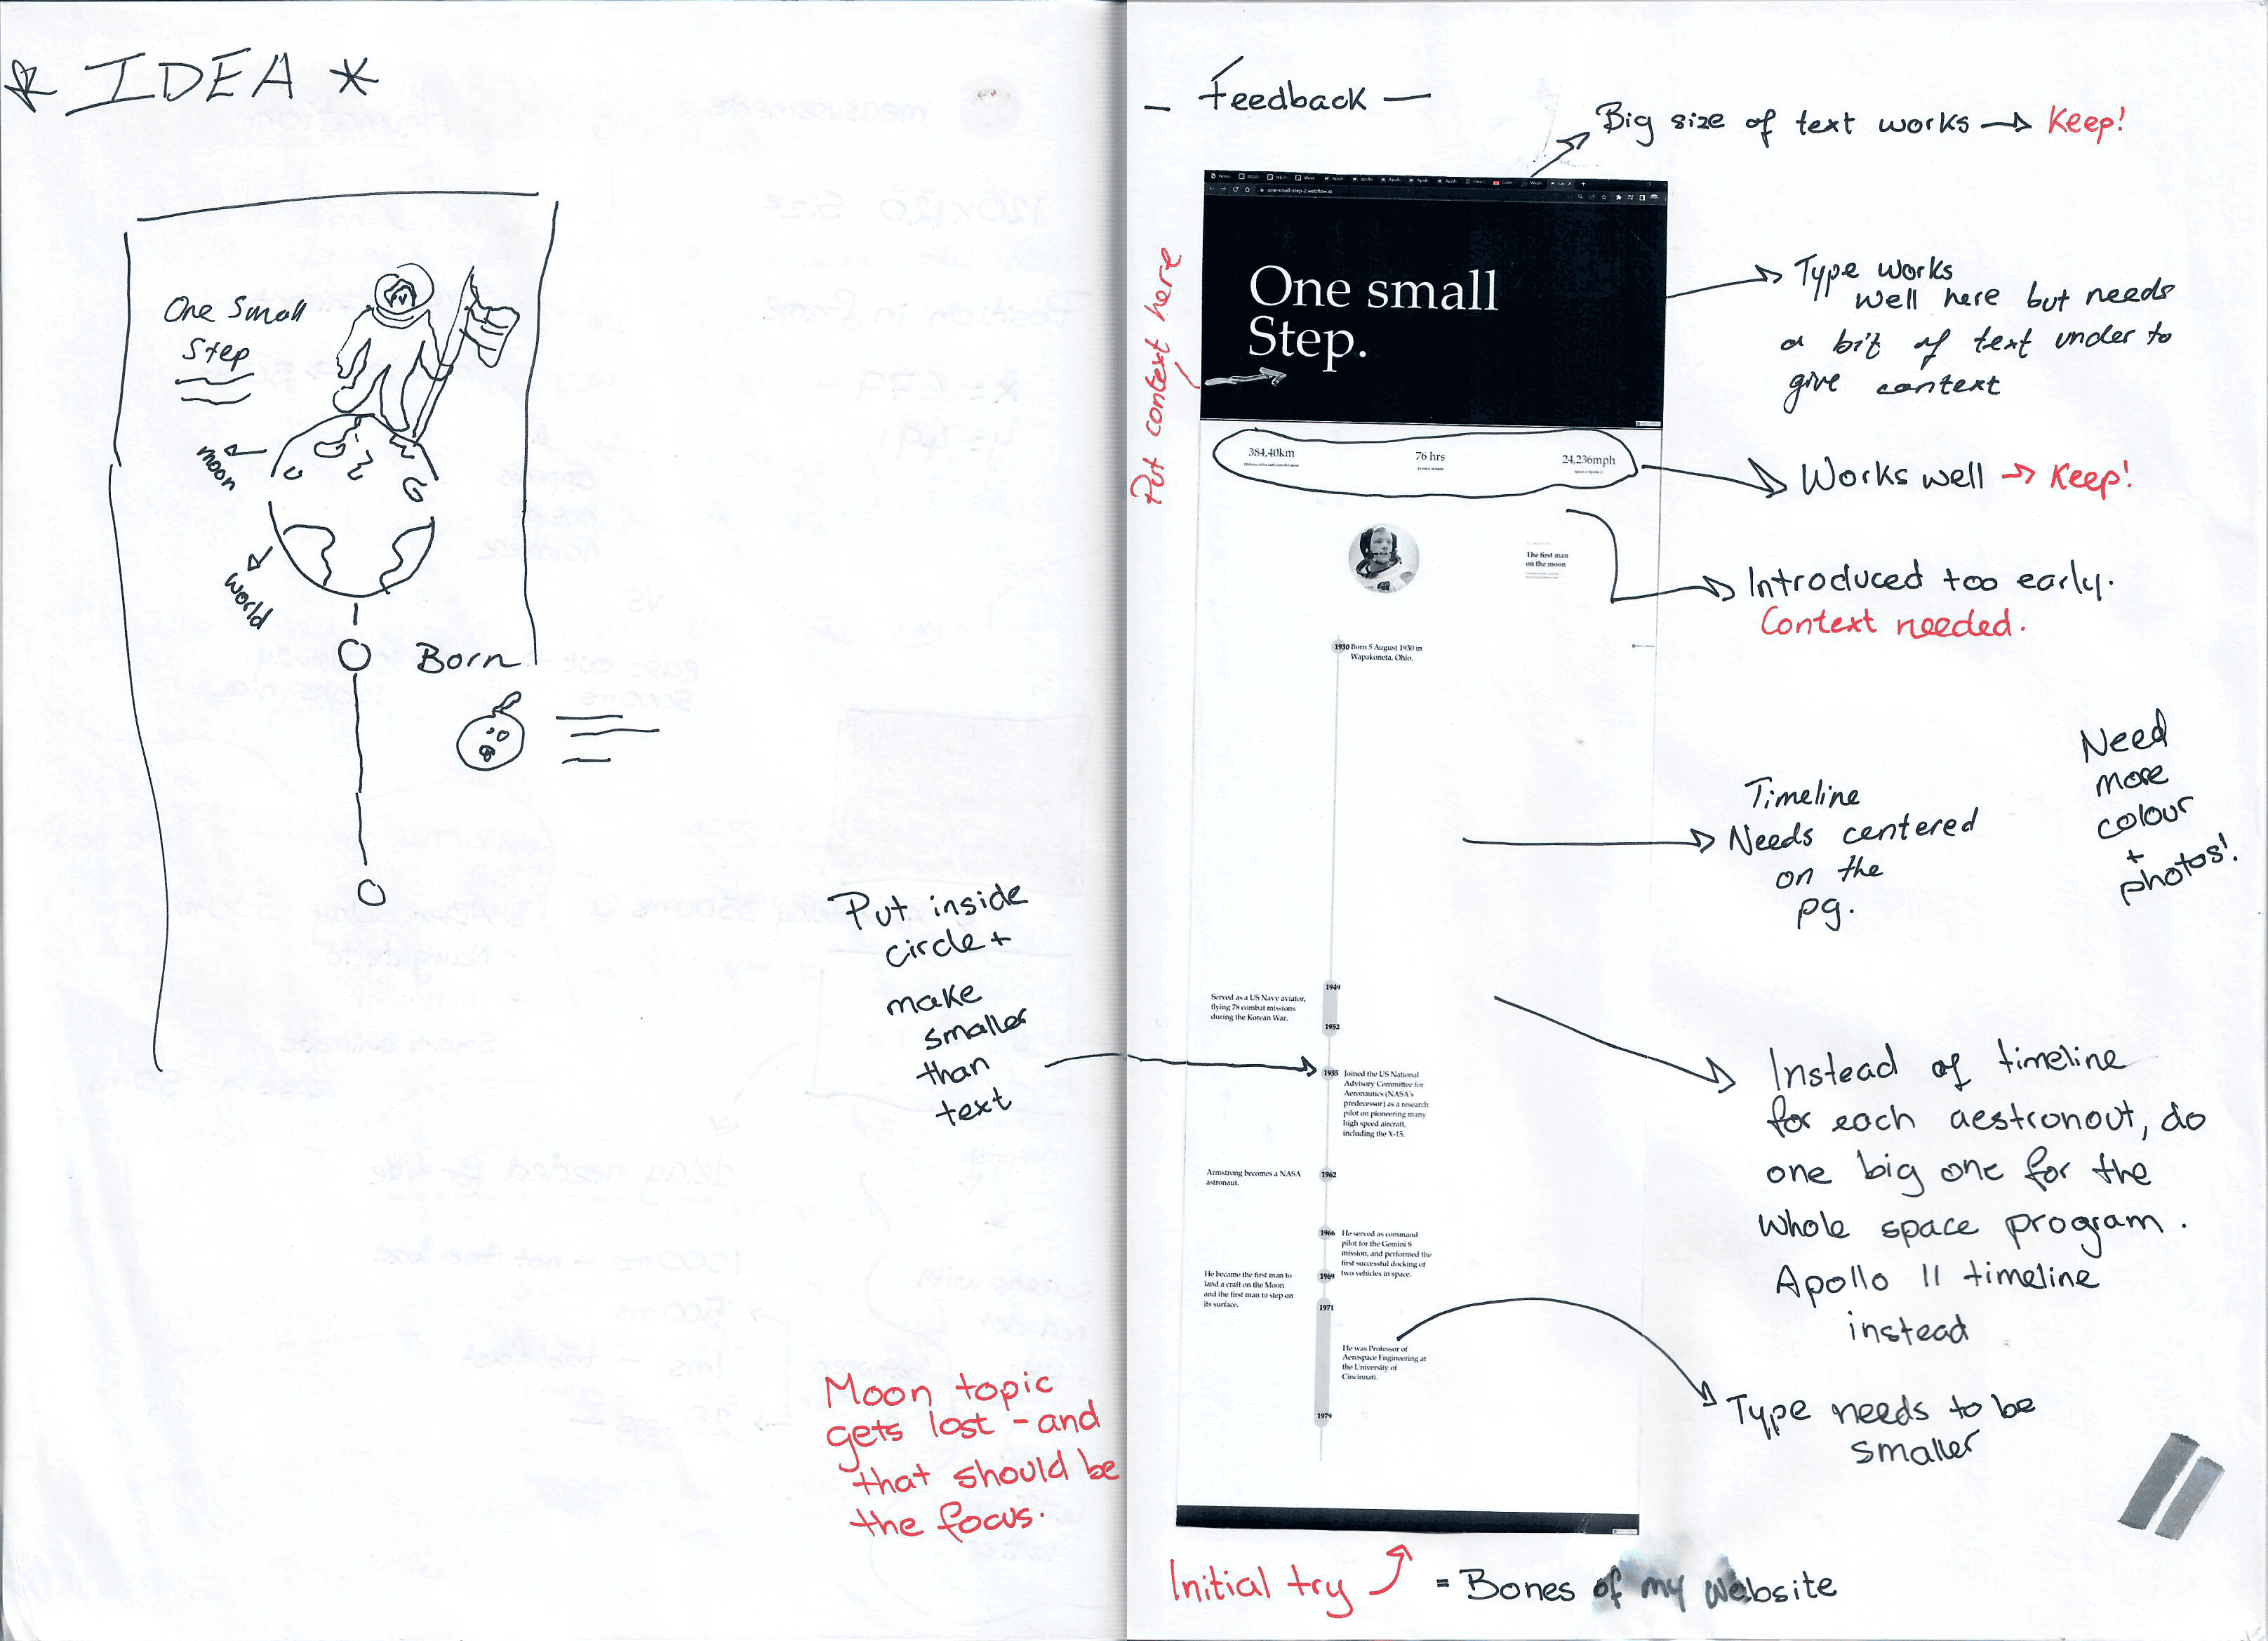 * IDEA *
One Small
Step
moon
world
Born
Put inside
circle +
make
smaller
than
text
Moon topic
gets lost - and
that should be
the focus.
- Feedback -
Big size of text works → Keep!
Put context here
one-small-step-2.webflow.io
One small
Step.
Type works
well here but needs
a bit of text under to
give context
384,40km
76 hrs
24,236mph
Works well → Keep!
The first man
on the moon
Introduced too early.
Context needed.
1930 Born 5 August 1930 in
Wapakoneta, Ohio.
Timeline
Needs centered
on the
pg.
Need
more
colour
+
photos!
1949
Served as a US Navy aviator,
flying 78 combat missions
during the Korean War.
1952
1955 Joined the US National
Advisory Committee for
Aeronautics (NASA's
predecessor) as a research
pilot on pioneering many
high speed aircraft,
including the X-15.
Armstrong becomes a NASA
astronaut.
1962
1966 He served as command
pilot for the Gemini 8
mission, and performed the
first successful docking of
two vehicles in space.
1969
He became the first man to
land a craft on the Moon
and the first man to step on
its surface.
1971
He was Professor of
Aerospace Engineering at
the University of
Cincinnati.
1979
Instead of timeline
for each aestronout, do
one big one for the
whole space program.
Apollo 11 timeline
instead
Type needs to be
smaller
Initial try = Bones of my website